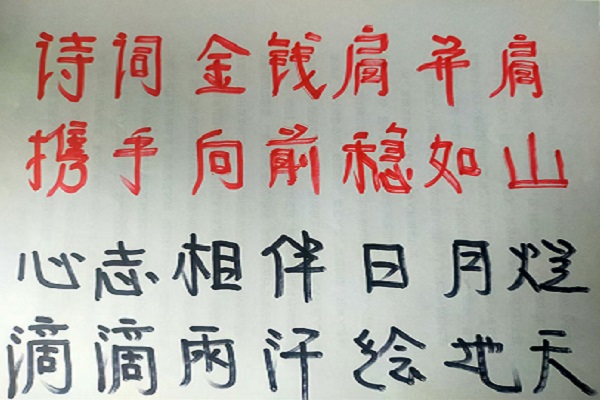 诗词金钱肩并肩
携手向前稳如山
心志相伴日月烂
滴滴雨汗绘地天